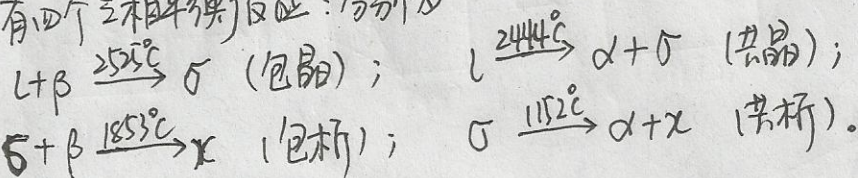 有四个三相平衡反应：分别为
L+β 2525℃→ σ （包晶）； L 2444℃→ α+σ （共晶）；
σ+β 1853℃→ χ （包析）； σ 1152℃→ α+χ （共析）。